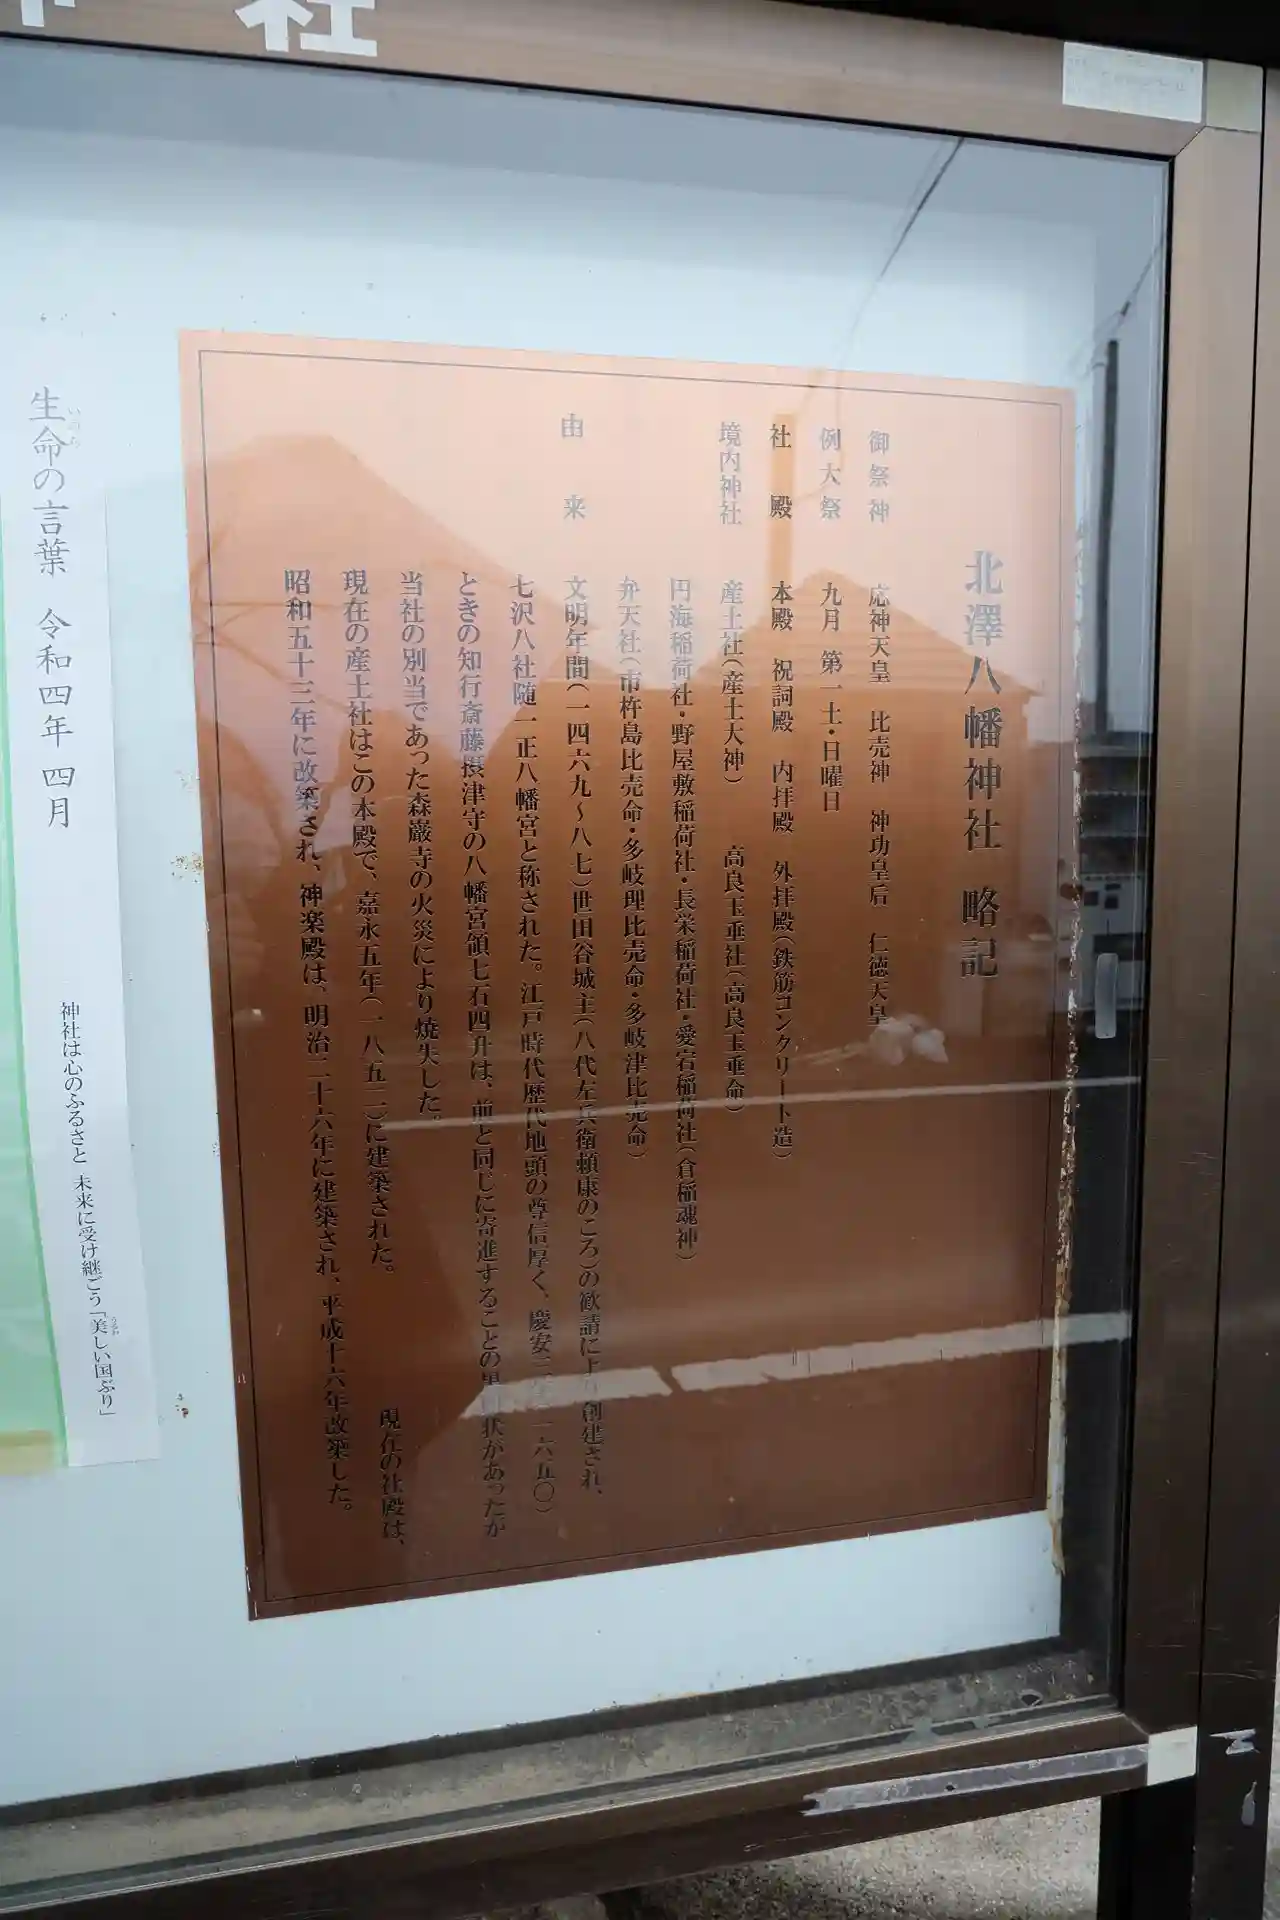 社
北澤八幡神社 略記
御祭神 応神天皇 比売神 神功皇后 仁徳天皇
例大祭 九月 第一土・日曜日
社殿 本殿 祝詞殿 内拝殿 外拝殿(鉄筋コンクリート造)
境内神社 産土社(産土大神) 高良玉垂社(高良玉垂命)
円海稲荷社・野屋敷稲荷社・長栄稲荷社・愛宕稲荷社(倉稲魂神)
弁天社(市杵島比売命・多岐理比売命・多岐津比売命)
由来 文明年間(一四六九〜八七)世田谷城主(八代左兵衛頼康のころ)の歓請により創建され、
七沢八社随一正八幡宮と称された。江戸時代歴代地頭の尊信厚く、慶安三年(一六五〇)
ときの知行斎藤摂津守の八幡宮領七石四升は、前と同じに寄進することの黒印状があったが
当社の別当であった森巌寺の火災により焼失した。
現在の産土社はこの本殿で、嘉永五年(一八五二)に建築された。 現在の社殿は、
昭和五十三年に改築され、神楽殿は、明治二十六年に建築され、平成十六年改築した。
生命の言葉 令和四年 四月
いのち
神社は心のふるさと 未来に受け継ごう「美しい国ぶり」